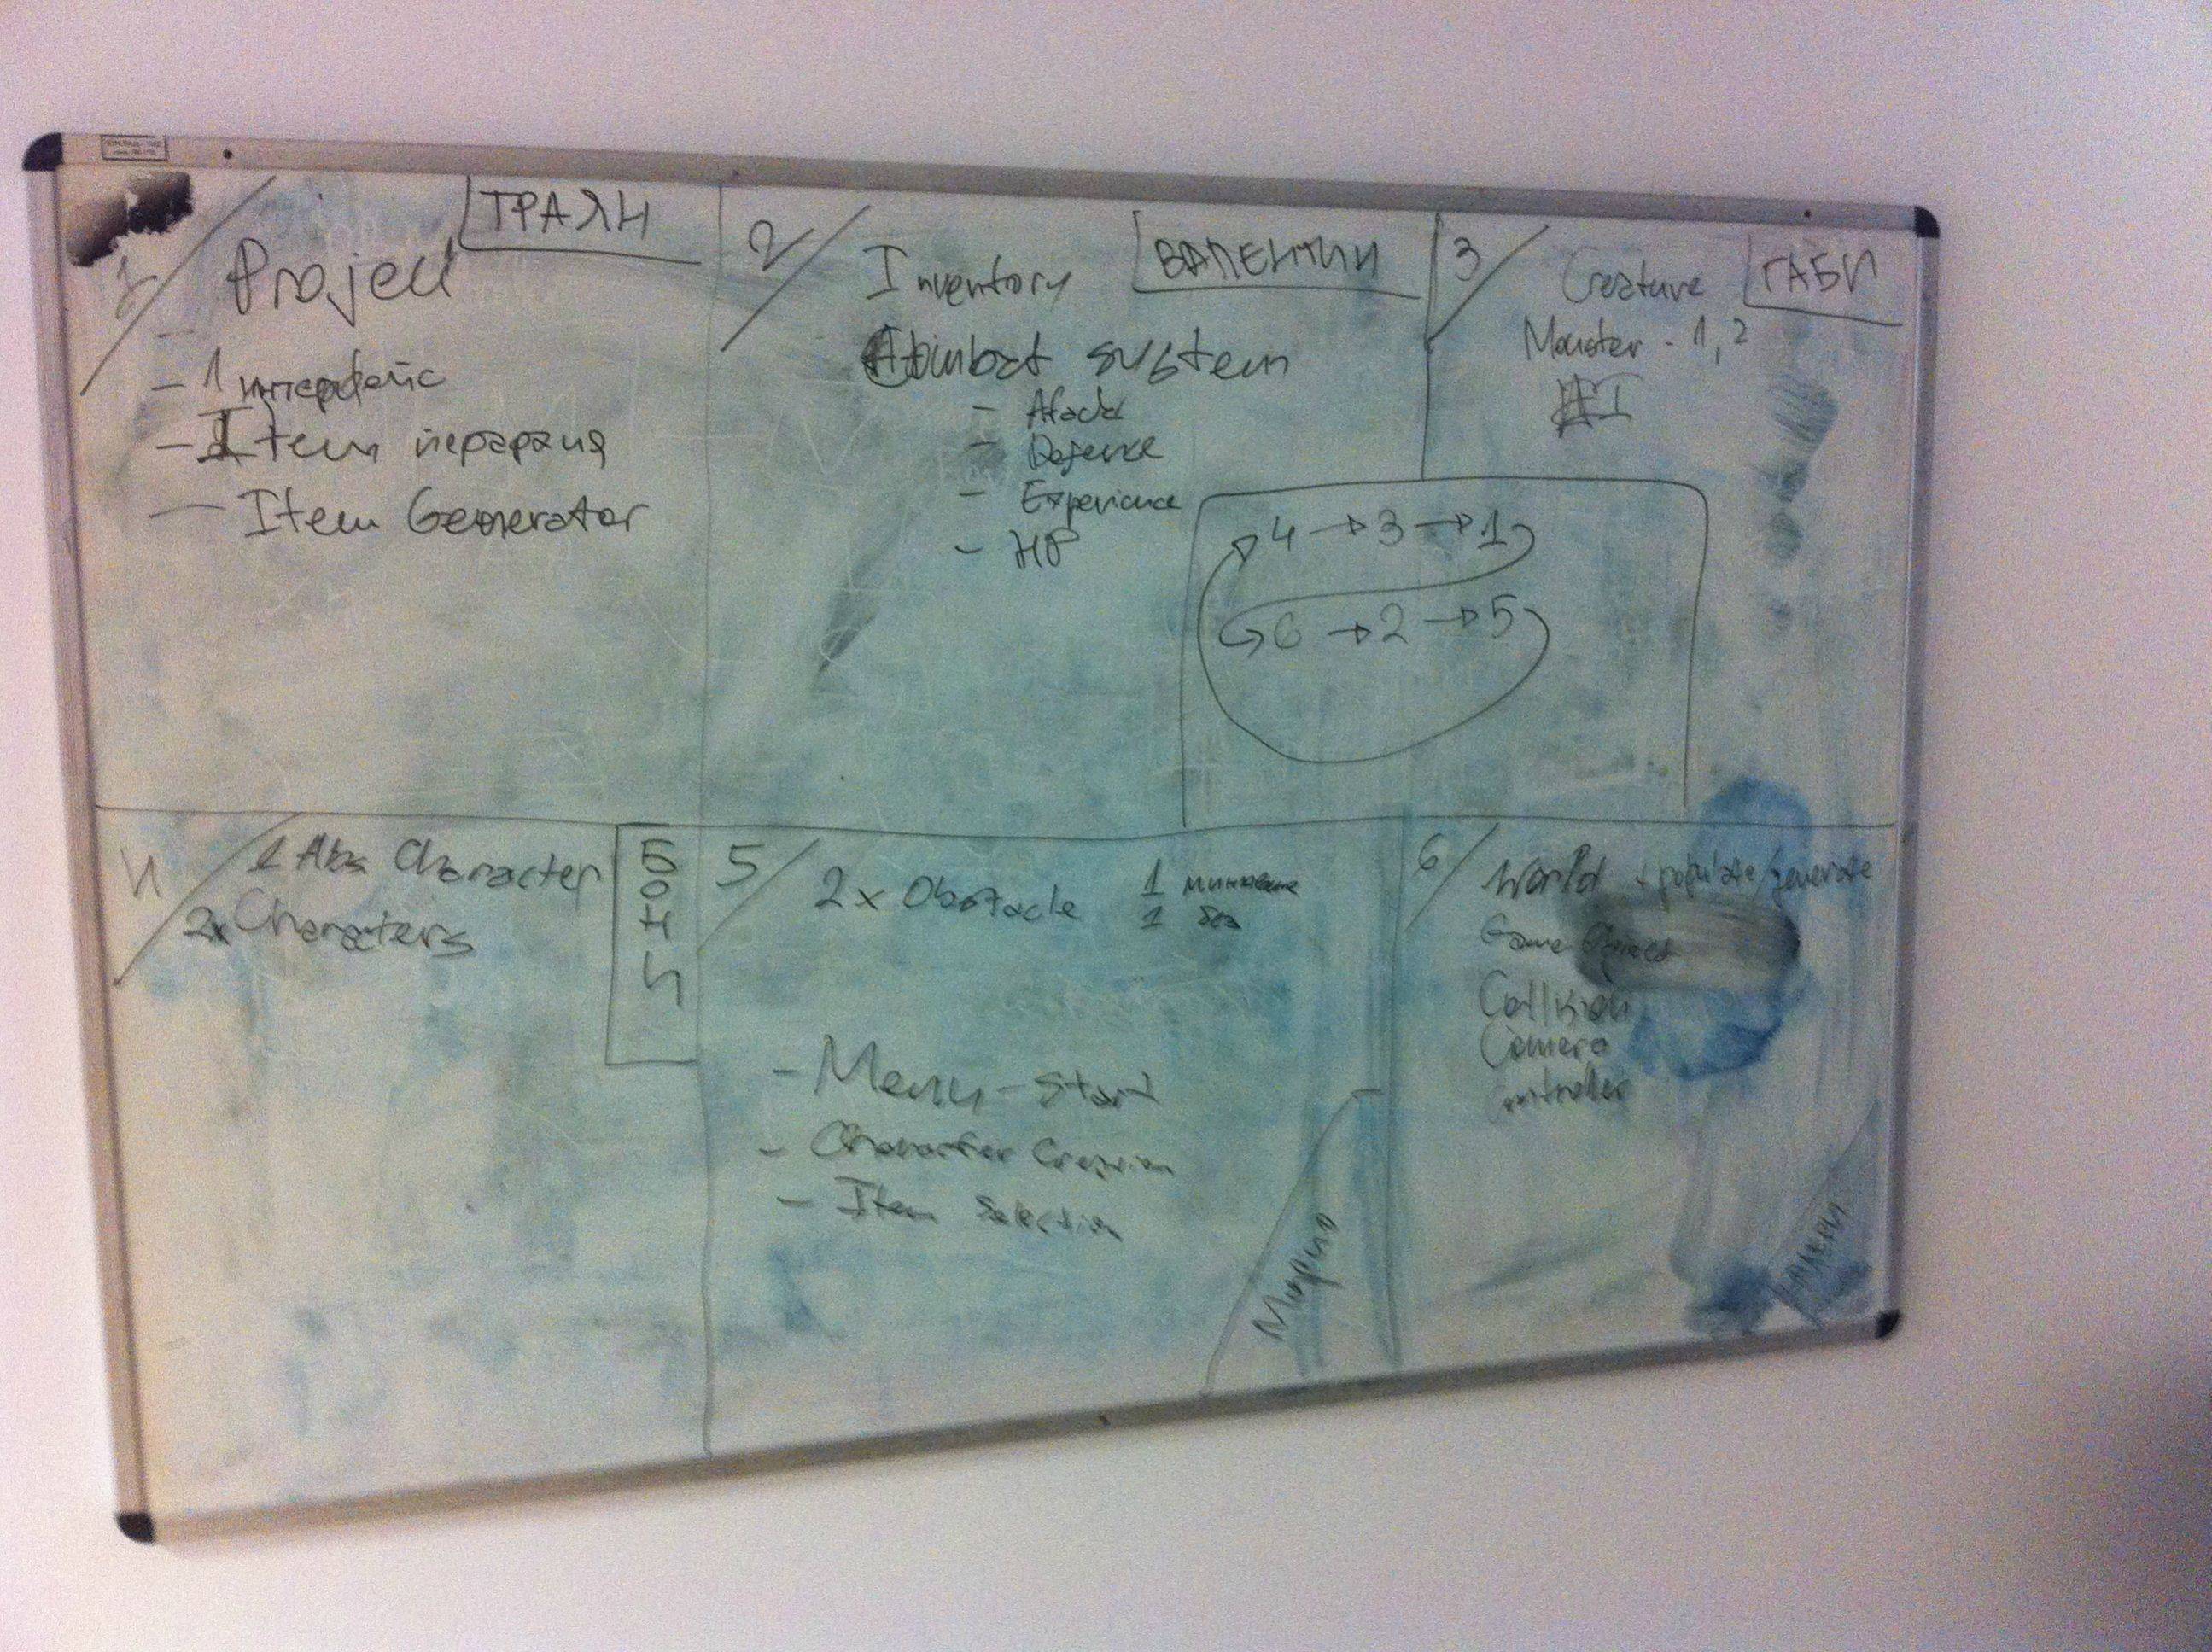 1/ Project ТРАЯН
- 1 интерфейс
- Item йерархия
- Item Generator
2/ Inventory ВАЛЕНТИН
Combat system
- Atack
- Defence
- Experience
- HP
3/ Creature ГАБИ
Monster - 1, 2
4 → 3 → 1
6 → 2 → 5
4/ 1 Abs Character
2x Characters
БОНЧ
5/ 2x Obstacle 1
1 без
- Menu - Start
- Character Creation
- Item Selection
Мирчо
6/ World + populate/generate
Game Object
Collision
Camera
Controller